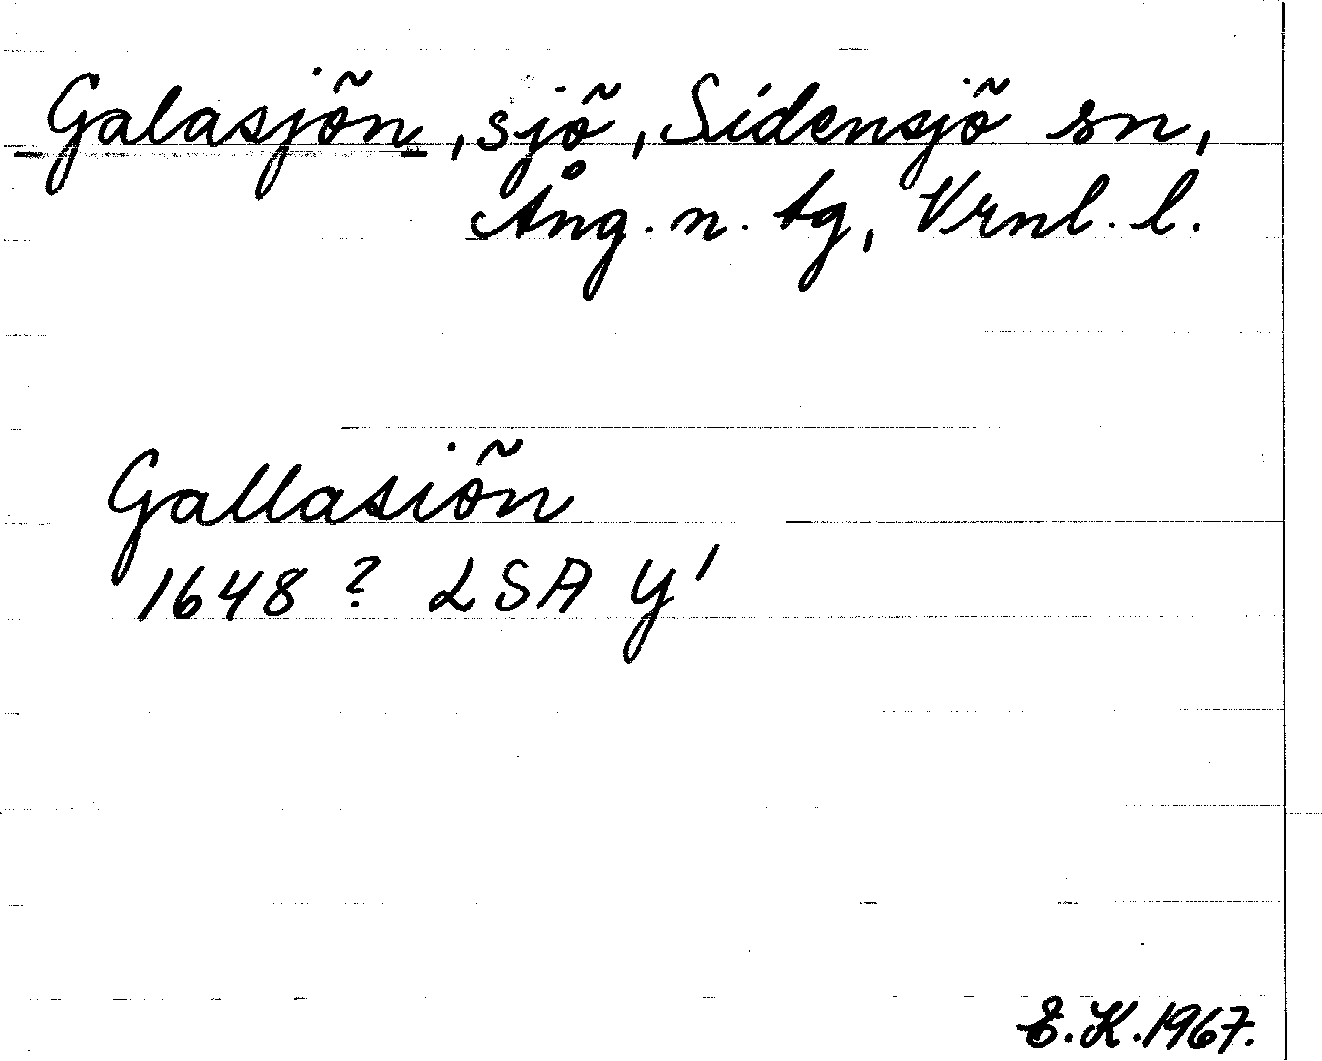 Galasjön, sjö, Sidensjö sn,
Ång. n. tg, Vrnl. l.
Gallasiön
1648 ? LSA Y'
E.K.1967.